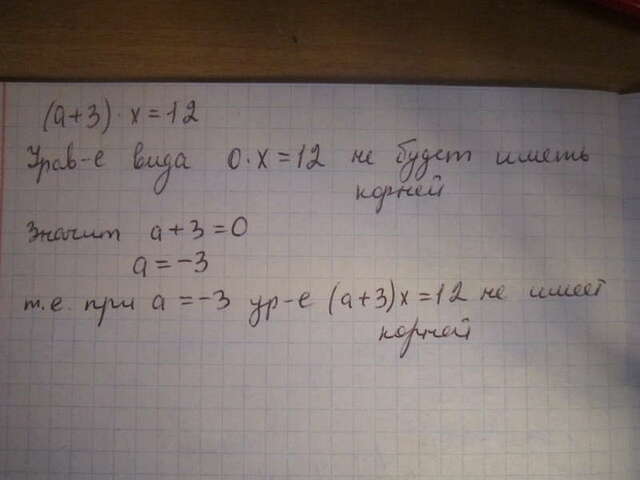 (a+3)·x=12
Урав-е вида 0·x=12 не будет иметь
корней
Значит a+3=0
a=-3
т.е. при a=-3 ур-е (a+3)x=12 не имеет
корней